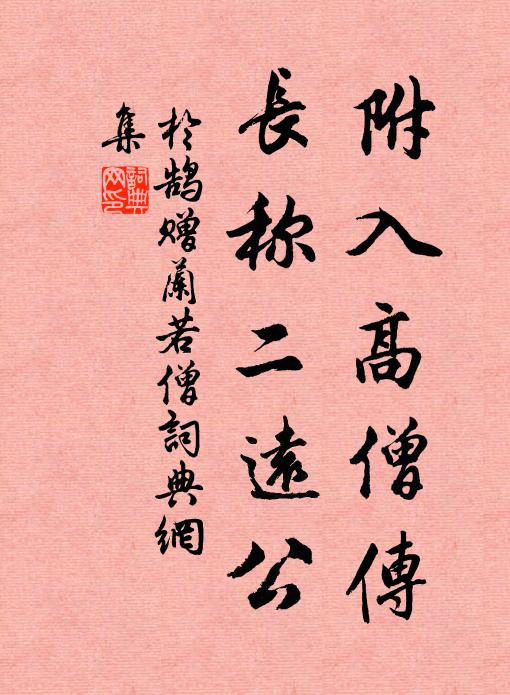 附入高僧傳
長称二遠公
於鹄贈蘭若僧詞典網
集
詞典
网印